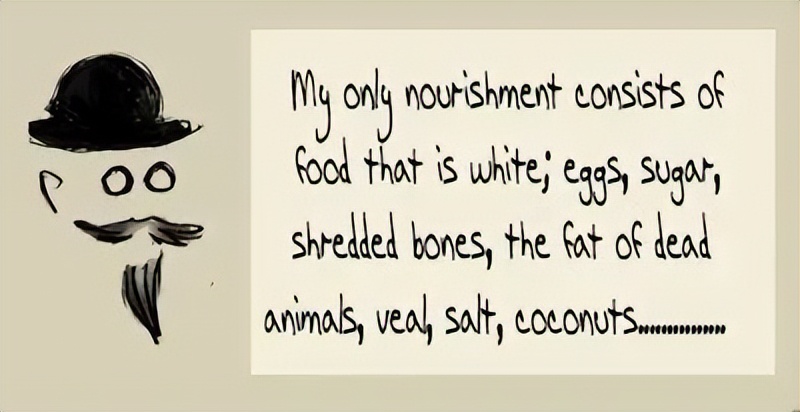 My only nourishment consists of
food that is white; eggs, sugar,
shredded bones, the fat of dead
animals, veal, salt, coconuts...............